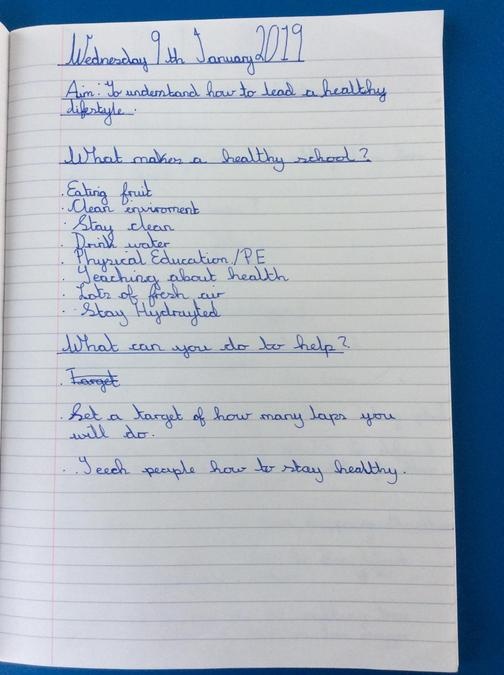 Wednesday 9th January 2019
Aim: To understand how to lead a healthy
lifestyle.
What makes a healthy school?
. Eating fruit
. Clean enviroment
. Stay clean
. Drink water
. Physical Education/PE
. Teaching about health
. Lots of fresh air
. Stay Hydrayted
What can you do to help?
. Target
. Set a target of how many laps you
will do.
. Teech people how to stay healthy.